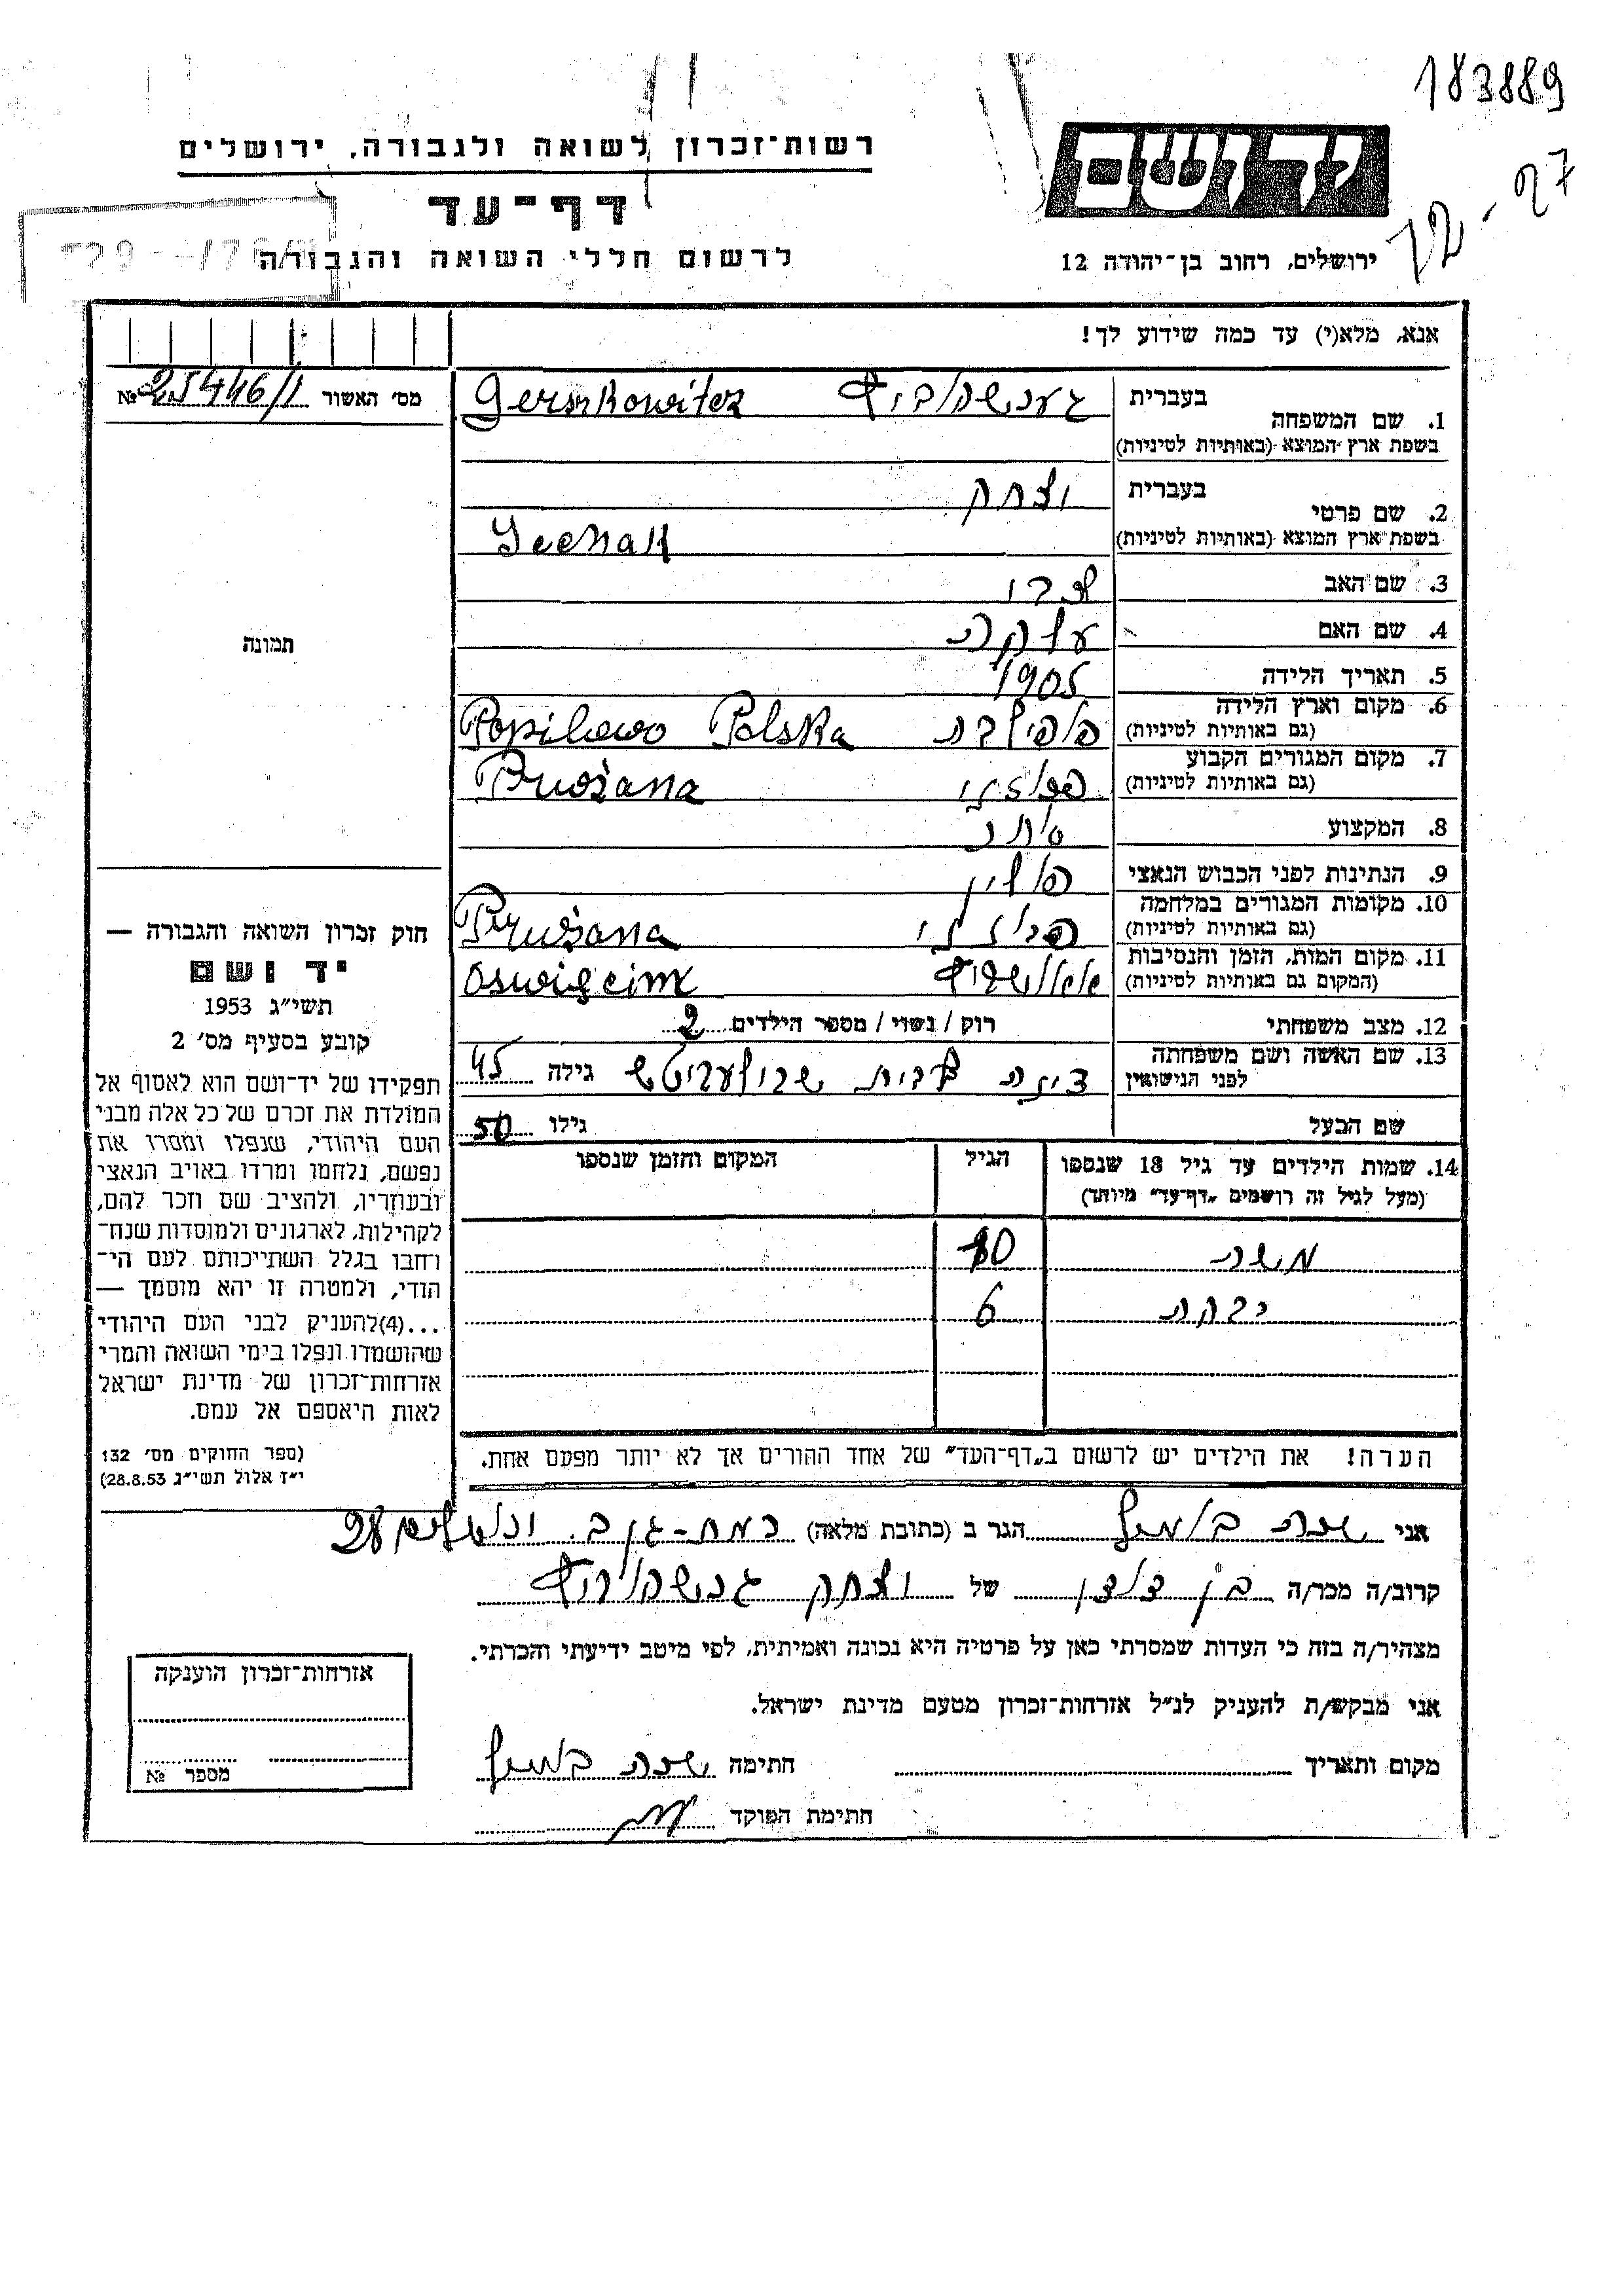 183889
רשות־זכרון לשואה ולגבורה, ירושלים
דף־עד
לרשום חללי השואה והגבורה
ירושלים, רחוב בן־יהודה 12
אנא, מלא(י) עד כמה שידוע לך!
מס׳ האשור 25446/1 №
תמונה
חוק זכרון השואה והגבורה —
יד ושם
תשי״ג 1953
קובע בסעיף מס׳ 2
תפקידו של יד־ושם הוא לאסוף אל
המולדת את זכרם של כל אלה מבני
העם היהודי, שנפלו ומסרו את
נפשם, נלחמו ומרדו באויב הנאצי
ובעוזריו, ולהציב שם וזכר להם,
לקהילות, לארגונים ולמוסדות שנח־
רחבו בגלל השתייכותם לעם הי־
הודי, ולמטרה זו יהא מוסמך —
...(4)להעניק לבני העם היהודי
שהושמדו ונפלו בימי השואה והמרי
אזרחות־זכרון של מדינת ישראל
לאות היאספם אל עמם.
(ספר החוקים מס׳ 132
י״ז אלול תשי״ג 28.8.53)
בעברית
1. שם המשפחה Gerszkowitez
בשפת ארץ המוצא (באותיות לטיניות)
בעברית יצחק
2. שם פרטי
בשפת ארץ המוצא (באותיות לטיניות)
3. שם האב צבי
4. שם האם
5. תאריך הלידה 1905
6. מקום וארץ הלידה Popilewo Polska
(גם באותיות לטיניות)
7. מקום המגורים הקבוע פרוז'ני Prużana
(גם באותיות לטיניות)
8. המקצוע סוחר
9. הנתינות לפני הכבוש הנאצי פולין
10. מקומות המגורים במלחמה פרוז'ני Prużana
(גם באותיות לטיניות)
11. מקום המות, הזמן והנסיבות אושוויץ Oswigcim
(המקום גם באותיות לטיניות)
12. מצב משפחתי רוק / נשוי / מספר הילדים 2
13. שם האשה ושם משפחתה לבית גילה 45
לפני הנישואין
שם הבעל גילו 50
14. שמות הילדים עד גיל 18 שנספו הגיל המקום והזמן שנספו
(מעל לגיל זה רושמים „דף־עד״ מיוחד)
משה 10
רבקה 6
הערה! את הילדים יש לרשום ב„דף־העד״ של אחד ההורים אך לא יותר מפעם אחת.
אני שרה הגר ב (כתובת מלאה) רמת-גן 28
קרוב/ה מכר/ה בן דודן של יצחק גרשקוביץ
מצהיר/ה בזה כי העדות שמסרתי כאן על פרטיה היא נכונה ואמיתית, לפי מיטב ידיעתי והכרתי.
אני מבקש/ת להעניק לנ״ל אזרחות־זכרון מטעם מדינת ישראל.
מקום ותאריך חתימה שרה
חתימת הפוקד
אזרחות־זכרון הוענקה
מספר №